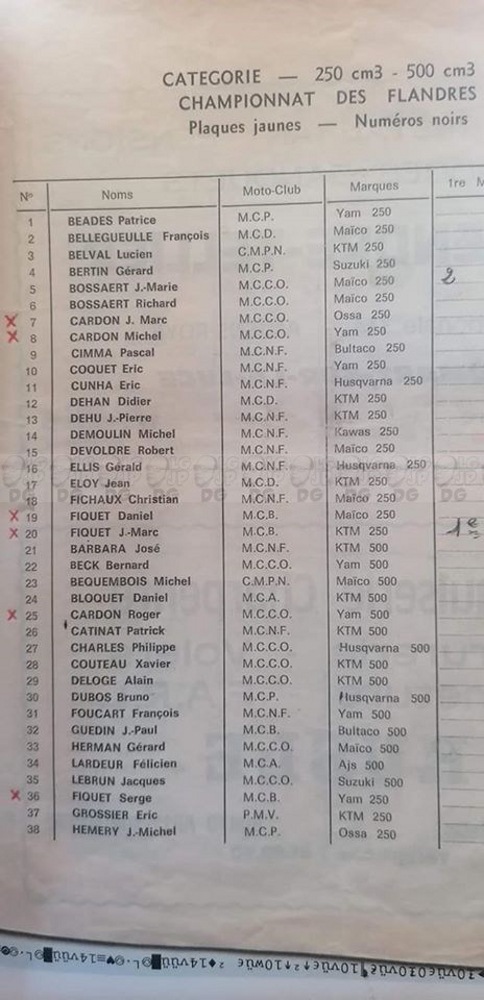 CATEGORIE — 250 cm3 - 500 cm3
CHAMPIONNAT DES FLANDRES
Plaques jaunes — Numéros noirs
N° Noms Moto-Club Marques 1re M
1 BEADES Patrice M.C.P. Yam 250
2 BELLEGUEULLE François M.C.D. Maïco 250
3 BELVAL Lucien C.M.P.N. KTM 250
4 BERTIN Gérard M.C.P. Suzuki 250 2
5 BOSSAERT J.-Marie M.C.C.O. Maïco 250
6 BOSSAERT Richard M.C.C.O. Maïco 250
X 7 CARDON J. Marc M.C.C.O. Ossa 250
X 8 CARDON Michel M.C.C.O. Yam 250
9 CIMMA Pascal M.C.N.F. Bultaco 250
10 COQUET Eric M.C.N.F. Yam 250
11 CUNHA Eric M.C.N.F. Husqvarna 250
12 DEHAN Didier M.C.D. KTM 250
13 DEHU J.-Pierre M.C.N.F. KTM 250
14 DEMOULIN Michel M.C.N.F. Kawas 250
15 DEVOLDRE Robert M.C.N.F. Maïco 250
16 ELLIS Gérald M.C.N.F. Husqvarna 250
17 ELOY Jean M.C.D. KTM 250
18 FICHAUX Christian M.C.N.F. Maïco 250
X 19 FIQUET Daniel M.C.B. Maïco 250
X 20 FIQUET J.-Marc M.C.B. KTM 250 1e
21 BARBARA José M.C.N.F. KTM 500
22 BECK Bernard M.C.C.O. Yam 500
23 BEQUEMBOIS Michel C.M.P.N. Maïco 500
24 BLOQUET Daniel M.C.A. KTM 500
X 25 CARDON Roger M.C.C.O. Yam 500
26 CATINAT Patrick M.C.N.F. KTM 500
27 CHARLES Philippe M.C.C.O. Husqvarna 500
28 COUTEAU Xavier M.C.C.O. KTM 500
29 DELOGE Alain M.C.C.O. KTM 500
30 DUBOS Bruno M.C.P. Husqvarna 500
31 FOUCART François M.C.N.F. Yam 500
32 GUEDIN J.-Paul M.C.B. Bultaco 500
33 HERMAN Gérard M.C.C.O. Maïco 500
34 LARDEUR Félicien M.C.A. Ajs 500
35 LEBRUN Jacques M.C.C.O. Suzuki 500
X 36 FIQUET Serge M.C.B. Yam 250
37 GROSSIER Eric P.M.V. KTM 250
38 HEMERY J.-Michel M.C.P. Ossa 250